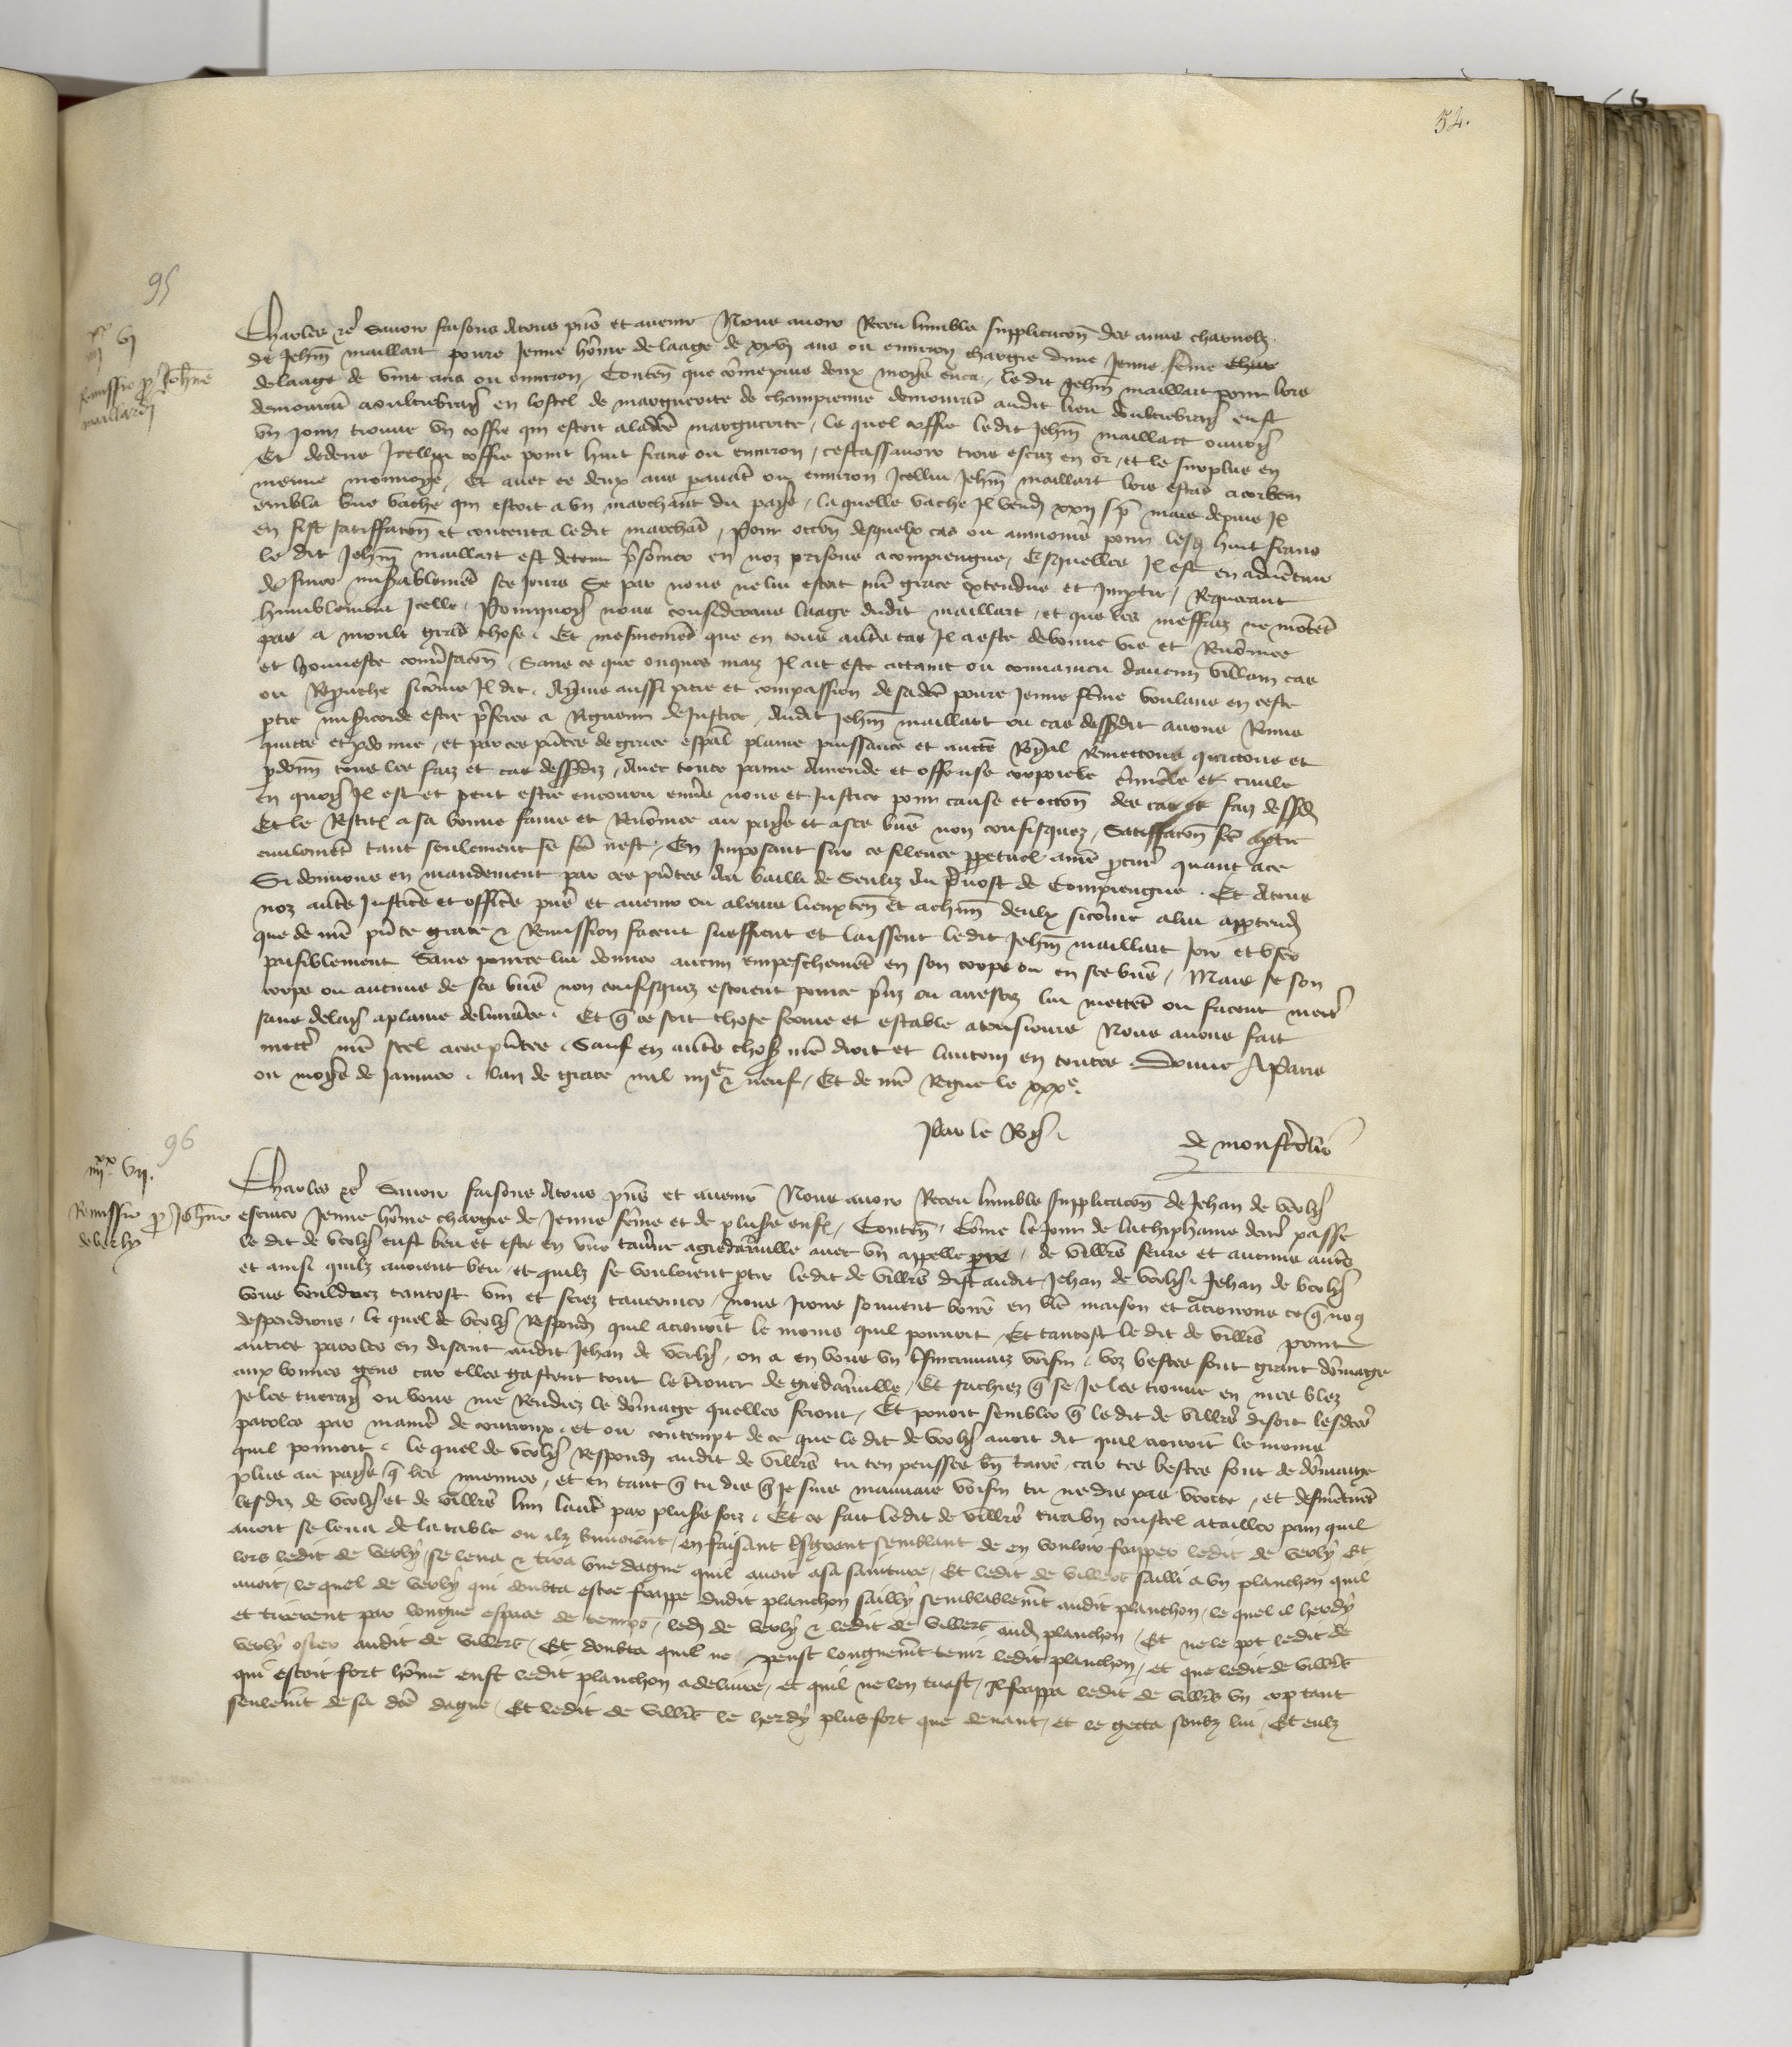 54.
95
iiii^xx vi
Remissio p Joh̄ne
maillard
Charles etc̃ Savoir faisons Atous p̃ns et avenir Nous avoir Receu humble supplicacõn des amis charnelz
de Jehan̄ maillart povre Jenne hõme de laage de xxvj ans ou environ chargie dune Jenne fẽme
de laage de vint ans ou environ, Conten̄ que cõme puis deux moys enca, le dit Jehan̄ maillart pour lors
demourãt en lostel de marguerite de champienne demourãt audit lieu eust
un Jour trouve un coffre qui estoit alad̃ce marguerite, le quel coffre ledit Jehan̄ maillart ouvry
Et dedens Icellui coffre print huit frans ou environ, cestassavoir trois escuz en or, et le surplus en
menue monnoye, Et avec ce deux ans pavãt ou environ Icellui Jehan̄ maillart lors estãt acorbein
embla une vache qui estoit a un marchant du pays, la quelle vache Il vend̃ xxij s̃ p̃ mais depuis Il
en fist satiffacõn et contenta ledit marchãt, Pour occõn desquelx cas ou aumoins pour lesd̃ huit frans
le dit Jehan̄ maillart est detenu p̃sõnier en noz prisons acompiengne, Esquelles Il est en advẽture
de finer mis̃ablemẽt ses Jours Se par nous ne lui estoit nr̃e grace extendue et Imptie, Requerant
humblement Icelle, Pourquoy nous considerans laage dudit maillart, et que les meffaiz ne mõtẽt
pas a moult grãt chose, Et mesmemẽt que en tous aut̃s cas Il a este debonne vie et Renõmee
et honneste conv̂sacõn, Sans ce que onques maiz Il ait este attaint ou convaincu daucun villain cas
ou Reprouche sicõme Il dit, Ayans aussi pitie et compassion de sad̃ce povre Jenne fẽme voulans en ceste
ptie mis̃icorde estre p̃feree a Rigueur de Justice, Audit Jehan̄ maillart ou cas dessusdit avons Remis
quitte et p̃donne, et par ces p̃ntes de grace esp̃al plaine puissance et auct̃e Royal Remettons quictons et
p̃donn̄ tous les faiz et cas dessusdiz, Avec toute paine Amende et offense corporele c̃minele et civile
en quoy Il est et peut estre encouru env̂s nous et Justice pour cause et occõn des cas et faiz dessusd̃
Et le Restit̃ a sa bonne fame et Renõmee au pays et a ses biẽs non confisquez, Satiffacõn fce aptie
civilemẽt tant seulement se fce nest, En Imposant sur ce silence p̃petuel anr̃e p̃cureũr quant ace
Si donnons en mandement par ces p̃ntes au bailli de Senliz au p̃vost de Compiengne, Et Atous
noz aut̃s Justic̃s et offic̃s p̃ns et avenir ou aleurs lieuxten̄ et achũn deulx sicõme alui append̃ra
que de nr̃e p̃nte grace & Remission facent sueffrent et laissent ledit Jehan̄ maillart Joir et user
paisiblement Sans pource lui donner aucun empeschemẽt en son corps ou en ses biẽs, Mais se son
corps ou aucuns de ses biẽs non confisquez estoient pource p̃ns ou arrestez lui mettẽt ou facent mectr̃
sans delay aplaine delivrãce, Et q̃ ce soit chose ferme et estable atousiours Nous avons fait
mettr̃ nr̃e scel aces p̃ntes, Sauf en aut̃s chos̃ nr̃e droit et lautruy en toutes, Donne A Paris
ou moys de Janvier, lan de grace mil iiii^c & neuf, Et de nr̃e Regne le xxx^e
Par le Roy,
de monstrelis
96
iiii^xx vij.
Remissio p Joh̄ne
de verly
Charles etc̃ Savoir faisons Atous p̃ns et avenir Nous avoir Receu humble supplicacõn de Jehan de verly
escuier Jenne hõme chargie de Jenne fẽme et de plusr̃s enf̃, Conten̄, Cõme le Jour de latiphaine deñr passe
le dit de verly eust beu et este en une tav̂ne agied̃arville avec un appelle de Vill̃rs et aucuns aut̃s
et ainsi quilz avoient beu et quilz se vouloient p̃tir ledit de Vill̃rs dist audit Jehan de verly, Jehan de verly
vous vouldrez tantost vin et serez tavernier, nous Irons souvent boire en vr̃e maison et acrorons ce q̃ nos
despendrons, le quel de verly Respond̃ quil acrorroit le moins quil pourroit, Et tantost le dit de vill̃rs print
autres paroles en disant audit Jehan de verly, on a en vous un t̃smauvaiz voisin, voz bestes font grant dõmage
aux bonnes gens car elles gastent tout le trouer de gied̃arville, Et sachiez q̃ se Je les trouve en mes blez
Je les tueray ou vous me Rendrez le dõmage quelles feront, Et povoit sembler q̃ le dit de vill̃rs disoit lesd̃ces
paroles par manier̃ de courroux, et ou contempt de ce que le dit de verly avoit dit quil croiroit le moins
quil pourroit, le quel de verly Respond̃ audit de vill̃rs tu ten peusses bn̄ taire, car tes bestes font de dõmaige
plus au pays q̃ les miennes, et en tant q̃ tu dis q̃ Je suis mauvais voisin tu ne dis pas verite, et desmẽtirẽt
lesdiz de verly et de vill̃rs lun lautr̃ par plusr̃s foiz, Et ce fait ledit de vill̃rs tira un coustel atailler pain quil
avoit se leva de la table ou ilz buvoient, en faisant t̃sgrant semblant de en vouloir frapper ledit de verly Et
lors ledit de verly se leva & tira une dague quil avoit asa sainture, Et ledit de villers sailli a un planchon quil
avoit, le quel de verly qui doubta estre frappe dudit planchon sailly semblablemẽt audit planchon, le quel il herdy
et tirerent par longue espace de temps, led̃ de verly & ledit de villers aud̃ planchon, Et ne le pot ledit de
verly oster audit de villers, Et doubta quil ne peust longuemẽt tenir ledit planchon, et que ledit de vill̃rs
qui estoit fort hõme eust ledit planchon adelivre, et quil ne len tuast, Il frappa ledit de vill̃rs un cop tant
seulemẽt de sa d̃ce dague, Et ledit de vill̃rs le herdy plus fort que devant, et le getta soubz lui, Et eulz